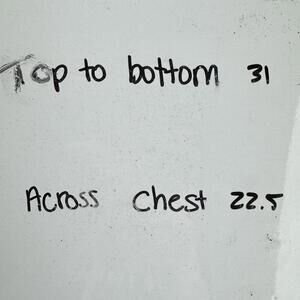 Top to bottom 31
Across Chest 22.5